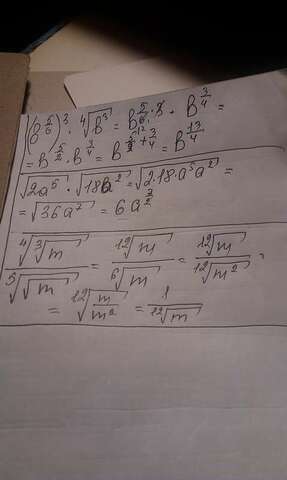 (b^{5/6})^3 · ⁴√b³ = b^{5/6 · 3} · b^{3/4} =
= b^{5/2} · b^{3/4} = b^{5/2 + 3/4} = b^{13/4}
√2a⁵ · √18a² = √2·18·a⁵a² =
= √36a⁷ = 6a^{7/2}
⁴√³√m / ³√√m = ¹²√m / ⁶√m = ¹²√m / ¹²√m² =
= ¹²√(m/m²) = 1/¹²√m